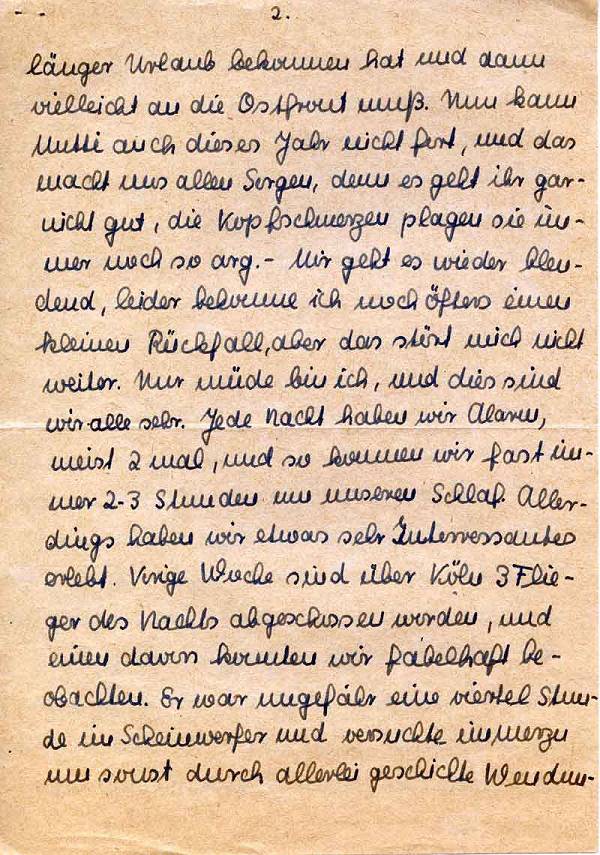 2.
länger Urlaub bekommen hat und dann
vielleicht an die Ostfront muß. Nun kann
Mutti auch dieses Jahr nicht fort, und das
macht uns allen Sorgen, denn es geht ihr gar-
nicht gut, die Kopfschmerzen plagen sie im-
mer noch so arg.- Mir geht es wieder blen-
dend, leider bekomme ich noch öfters einen
kleinen Rückfall, aber das stört mich nicht
weiter. Nur müde bin ich, und dies sind
wir alle sehr. Jede Nacht haben wir Alarm,
meist 2 mal, und so kommen wir fast im-
mer 2-3 Stunden um unseren Schlaf. Aller-
dings haben wir etwas sehr Interressantes
erlebt. Vorige Woche sind über Köln 3 Flie-
ger des Nachts abgeschossen worden, und
einen davon konnten wir fabelhaft be-
obachten. Er war ungefähr eine viertel Stun-
de im Scheinwerfer und versuchte immerzu
umsonst durch allerlei geschickte Wendun-